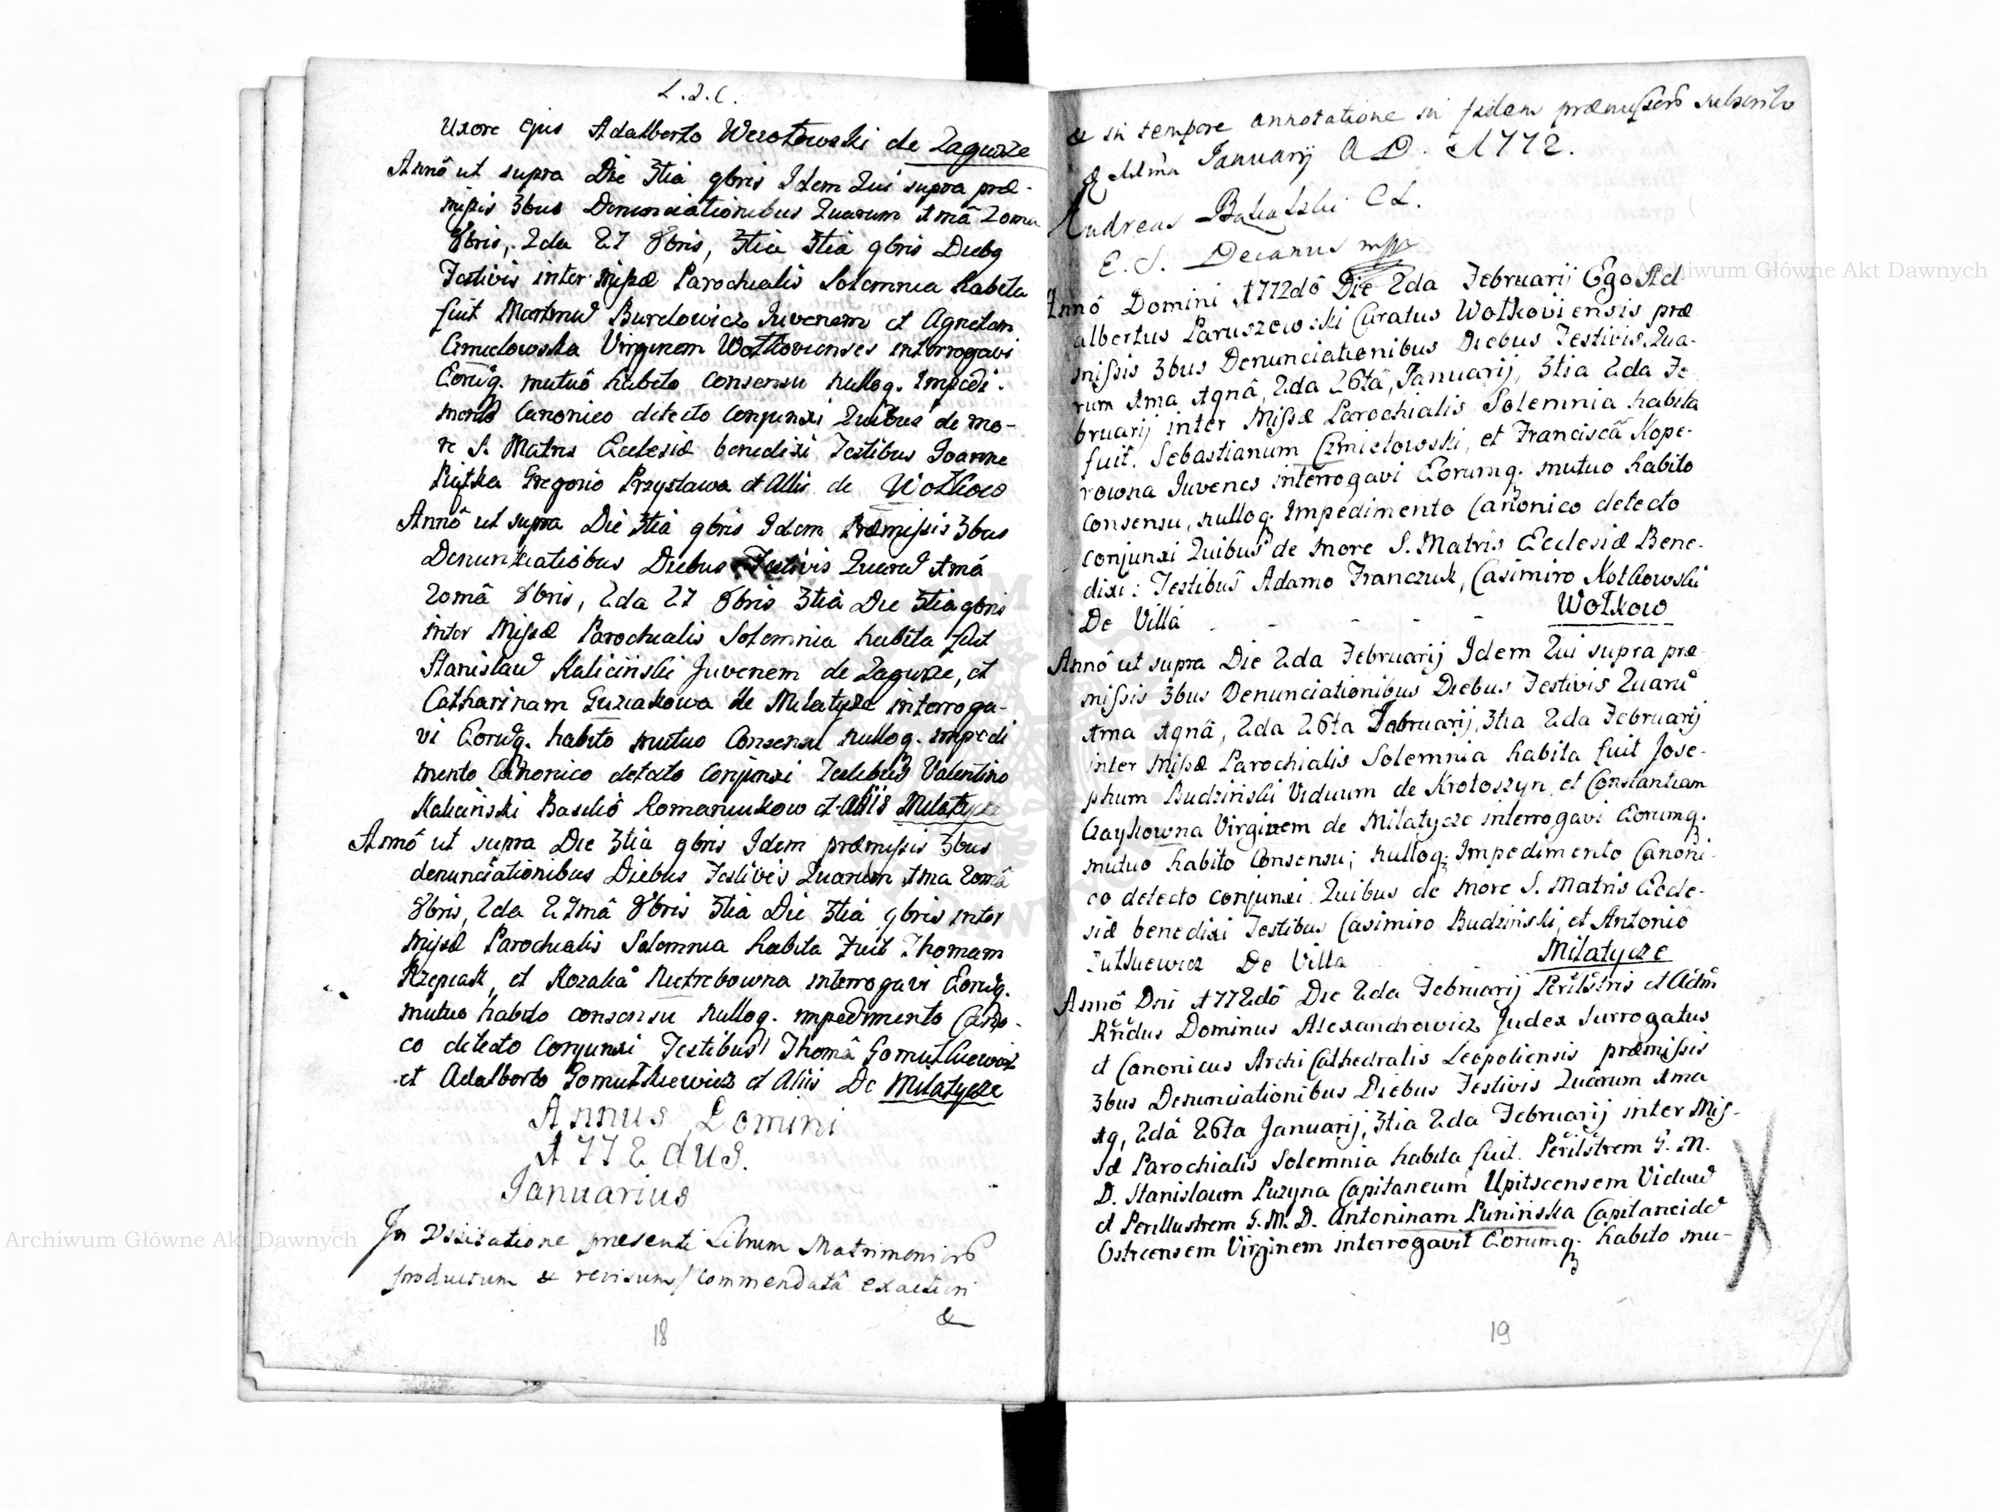 L.J.C.
Uxore Ejus Adalberto Wesołowski de Zagurze
Annô ut supra Die 3tia 9bris Idem Qui supra præ-
missis 3bus Denunciationibus Quarum 1mâ 20ma
8bris, 2da 27 8bris, 3tia 3tiâ 9bris Diebq
Festivis inter Missæ Parochialis Solemnia habita
fuit Martinũ Burdowicz Juvenem et Agnetam
Czmielowska Virginem Wołkovienses interrogavi
Eorũq. mutuô habito consensu nulloq. Impedi-
mento Canonico detecto conjunxi Quibus de mo-
re S. Matris Ecclesiæ benedixi Testibus Joanne
Piątka Gregorio Przystawa et Aliis de Wołkow
Annô ut supra Die 3tiâ 9bris Idem Præmissis 3bus
Denuntiatiõbus Diebus Festivis Quarũ 1mâ
20mâ 8bris, 2da 27 8bris 3tiâ Die 3tia 9bris
inter Missæ Parochialis Solemnia habita fuit
Stanislaũ Kaliciński Juvenem de Zagurze, et
Catharinam Guziakowa de Milatycze interroga-
vi Eorũq. habito mutuo Consensu nulloq. impedi
mento Canonico detecto conjunxi Testibus Valentino
Kaliciński Basiliô Romaniukow et Aliis Milatycze
Annô ut supra Die 3tia 9bris Idem præmissis 3bus
denunciationibus Diebus Festivis Quarum 1ma 20mâ
8bris, 2da 27mâ 8bris 3tiâ Die 3tiâ 9bris inter
Missæ Parochialis Solemnia habita Fuit Thomam
Rzepiak, et Rozaliã Nietrebowna interrogavi Eorũq.
mutuo habito consensu nulloq. impedimento Cano-
co detecto Conjunxi Testibus Thomâ Gomułkiewicz
et Adalberto Gomułkiewicz et Aliis De Milatycze
Annus Domini
1772dus.
Januarius
In Visitatione presenti Librum Matrimoniorũ
productum & revisum, commendatâ exactiori
&
18
& in tempore annotatione in fidem præmissorũ subscribo
Januarij A D. 1772.
Andreas
E. S. Decanus mpp
Annô Domini 1772dô Die 2da Februarij Ego Ad-
albertus Paruszewski Curatus Wołkoviensis præ
missis 3bus Denunciationibus Diebus Festivis, Qua-
rum 1ma 19nâ, 2da 26tâ, Januarij, 3tia 2da Fe-
bruarij inter Missæ Parochialis Solemnia habita
fuit. Sebastianum Czmielowski, et Franciscã Kope-
rowna Juvenes interrogavi Eorumq. mutuo habito
consensu, nulloq. Impedimento Canonico detecto
conjunxi Quibus de More S. Matris Ecclesiæ Bene-
dixi: Testibus Adamo Franczuk, Casimiro Kotkowski
De Villâ - - - - - Wołkow
Annô ut supra Die 2da Februarij Idem Qui supra præ-
missis 3bus Denunciationibus Diebus Festivis Quarũ
1ma 19nâ, 2da 26ta Februarij, 3tia 2da Februarij
inter Missæ Parochialis Solemnia habita fuit Jose-
phum Budziński Viduum de Krotoszyn, et Constantiam
Czaykowna Virginem de Milatycze interrogavi Eorumq.
mutuo habito Consensu; nulloq. Impedimento Canoni-
co detecto conjunxi Quibus de More S. Matris Eccle-
siæ benedixi Testibus Casimiro Budziński, et Antoniô
De Villa Milatycze
Annô Dni 1772dô Die 2da Februarij Perilstris et Adm̃
Rñdus Dominus Alexandrowicz Judex Surrogatus
et Canonicus Archi Cathedralis Leopoliensis præmissis
3bus Denunciationibus Diebus Festivis Quarum 1ma
19, 2dâ 26ta Januarij, 3tia 2da Februarij inter Mis-
sæ Parochialis Solemnia habita fuit. Perilstrem G. M.
D. Stanislaum Puzyna Capitaneum Upitscensem Viduũ
et Perillustrem G. M. D. Antoninam Punińska Capitaneidẽ
Ostrcensem Virginem interrogavit Eorumq. habito mu-
19
Archiwum Główne Akt Dawnych
Archiwum Główne Akt Dawnych